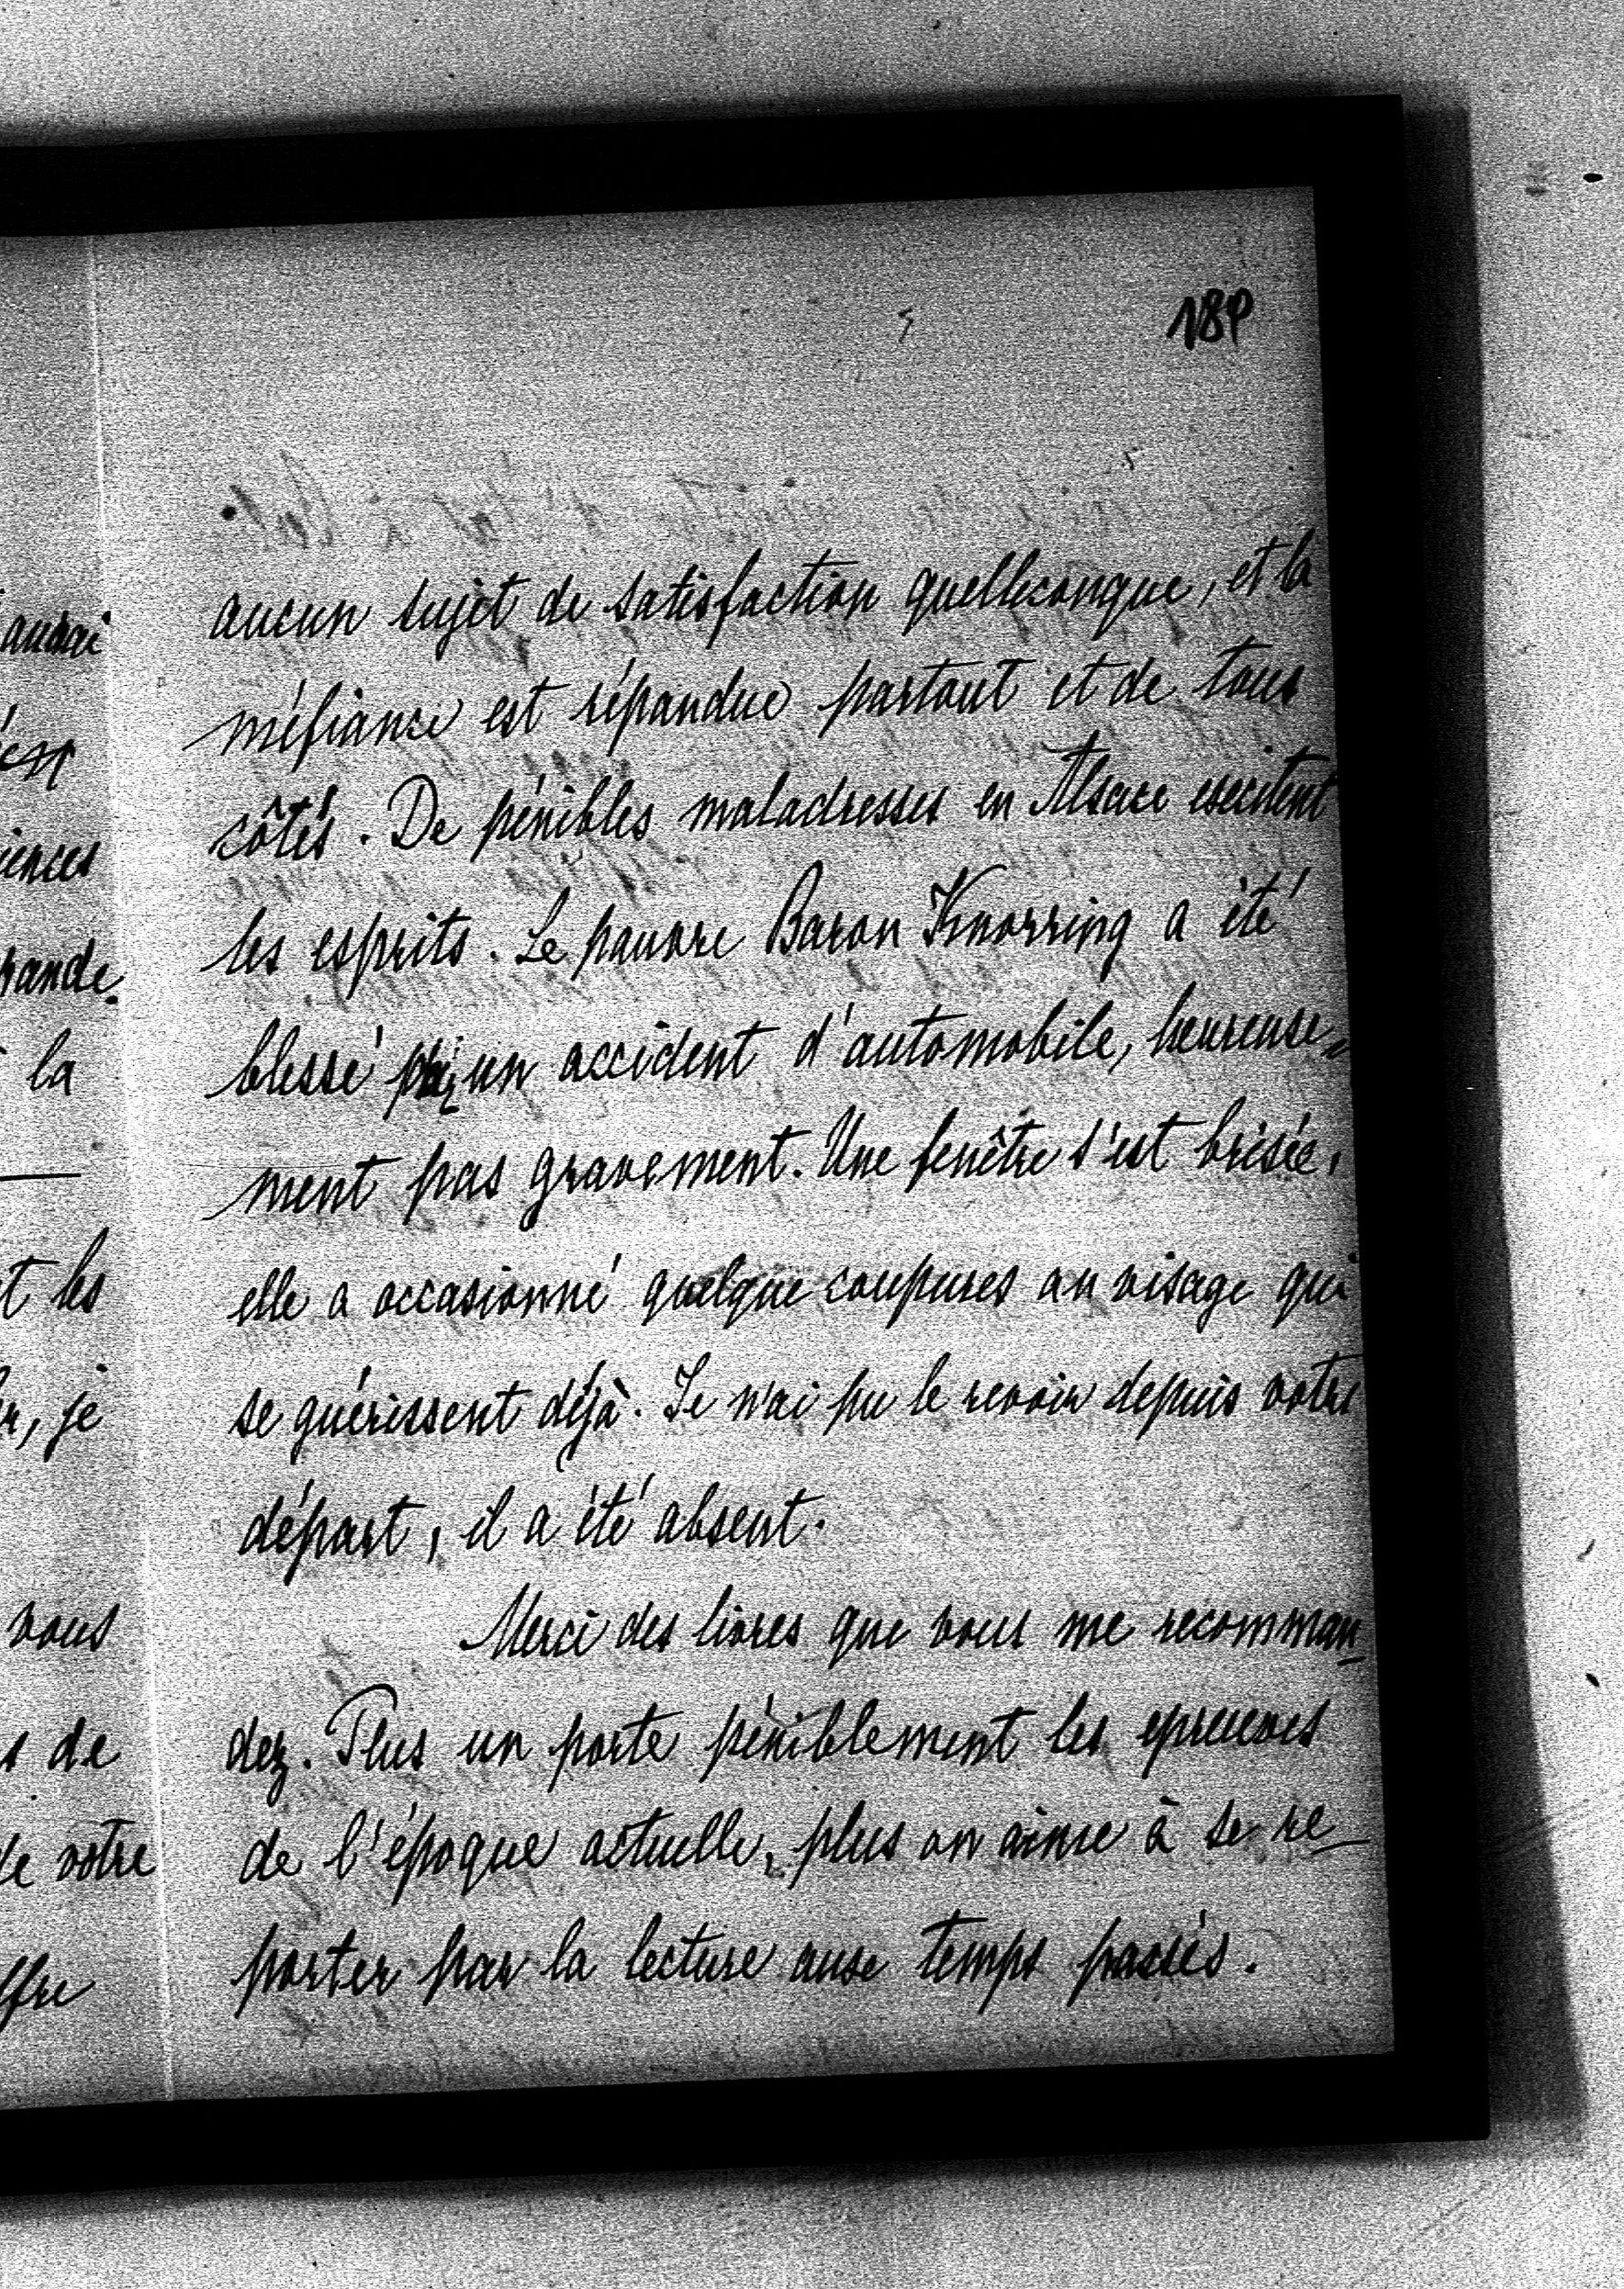 189
aucun sujet de satisfaction quelleconque, et la
méfiance est répandue partout et de tous
côtés. De pénibles maladresses en Alsace excitent
les esprits. Le pauvre Baron Knorring a été
blessé par un accident d'automobile, heureuse-
ment pas gravement. Une fenêtre s'est brisée,
elle a occasionné quelque coupures au visage qui
se guérissent déjà. Je n'ai pu le revoir depuis votre
départ, il a été absent.
Merci des livres que vous me recomman-
dez. Plus un porte péniblement les epreuves
de l'époque actuelle, plus on aime à se re-
porter par la lecture aux temps passés.
rande.
la
t les
je
vous
de
votre